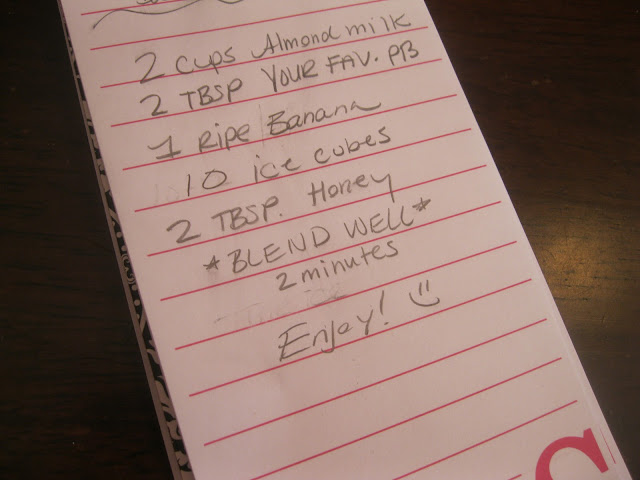 2 cups Almond milk
2 TBSP YOUR FAV. PB
1 Ripe Banana
10 ice cubes
2 TBSP. Honey
*BLEND WELL*
2 minutes
Enjoy!